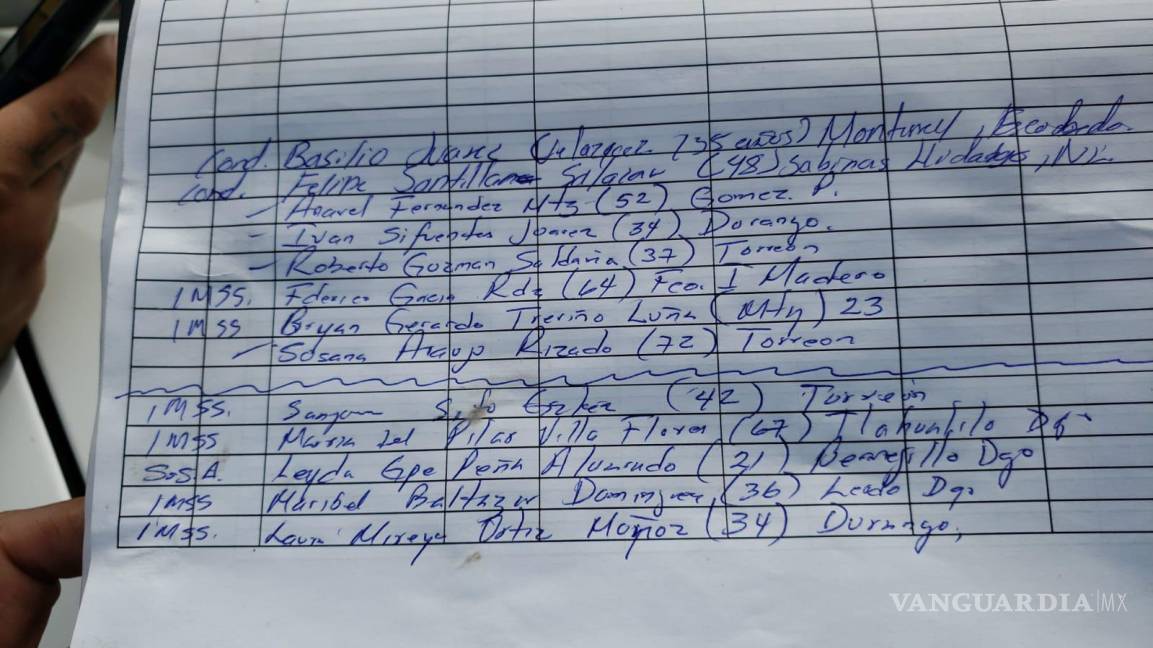 Cond. Basilio Juarez Velazquez (35 años) Monterrey, Escobedo.
Cond. Felipe Santillan Salazar (48) Sabinas Hidalgo, NL
- Anavel Fernandez Mtz (52) Gomez. P.
- Ivan Sifuentes Juarez (34) Durango.
- Roberto Guzman Saldaña (37) Torreon
IMSS. Federico Rdz (64) Fco. I Madero
IMSS Bryan Gerardo Treviño Luña (Mty) 23
- Sosana Araujo Rizado (72) Torreon
IMSS. (42) Torreón
IMSS Maria del Pilar Villa Flores (67) Tlahualilo Dgo
S.S.A. Leyda Gpe Peña Alvarado (21) Bermejillo Dgo
IMSS Maribel Baltazar Dominguez, (36) Lerdo Dgo
IMSS. Laura Mireya Ortiz Muñoz (34) Durango,
VANGUARDIA|MX